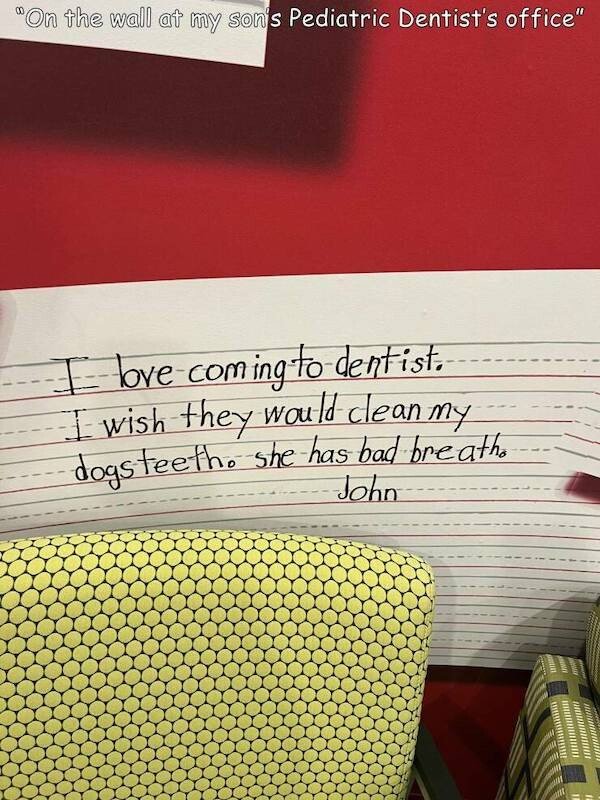 "On the wall at my son's Pediatric Dentist's office"
I love coming to dentist.
I wish they would clean my
dogs teeth. she has bad breath.
John